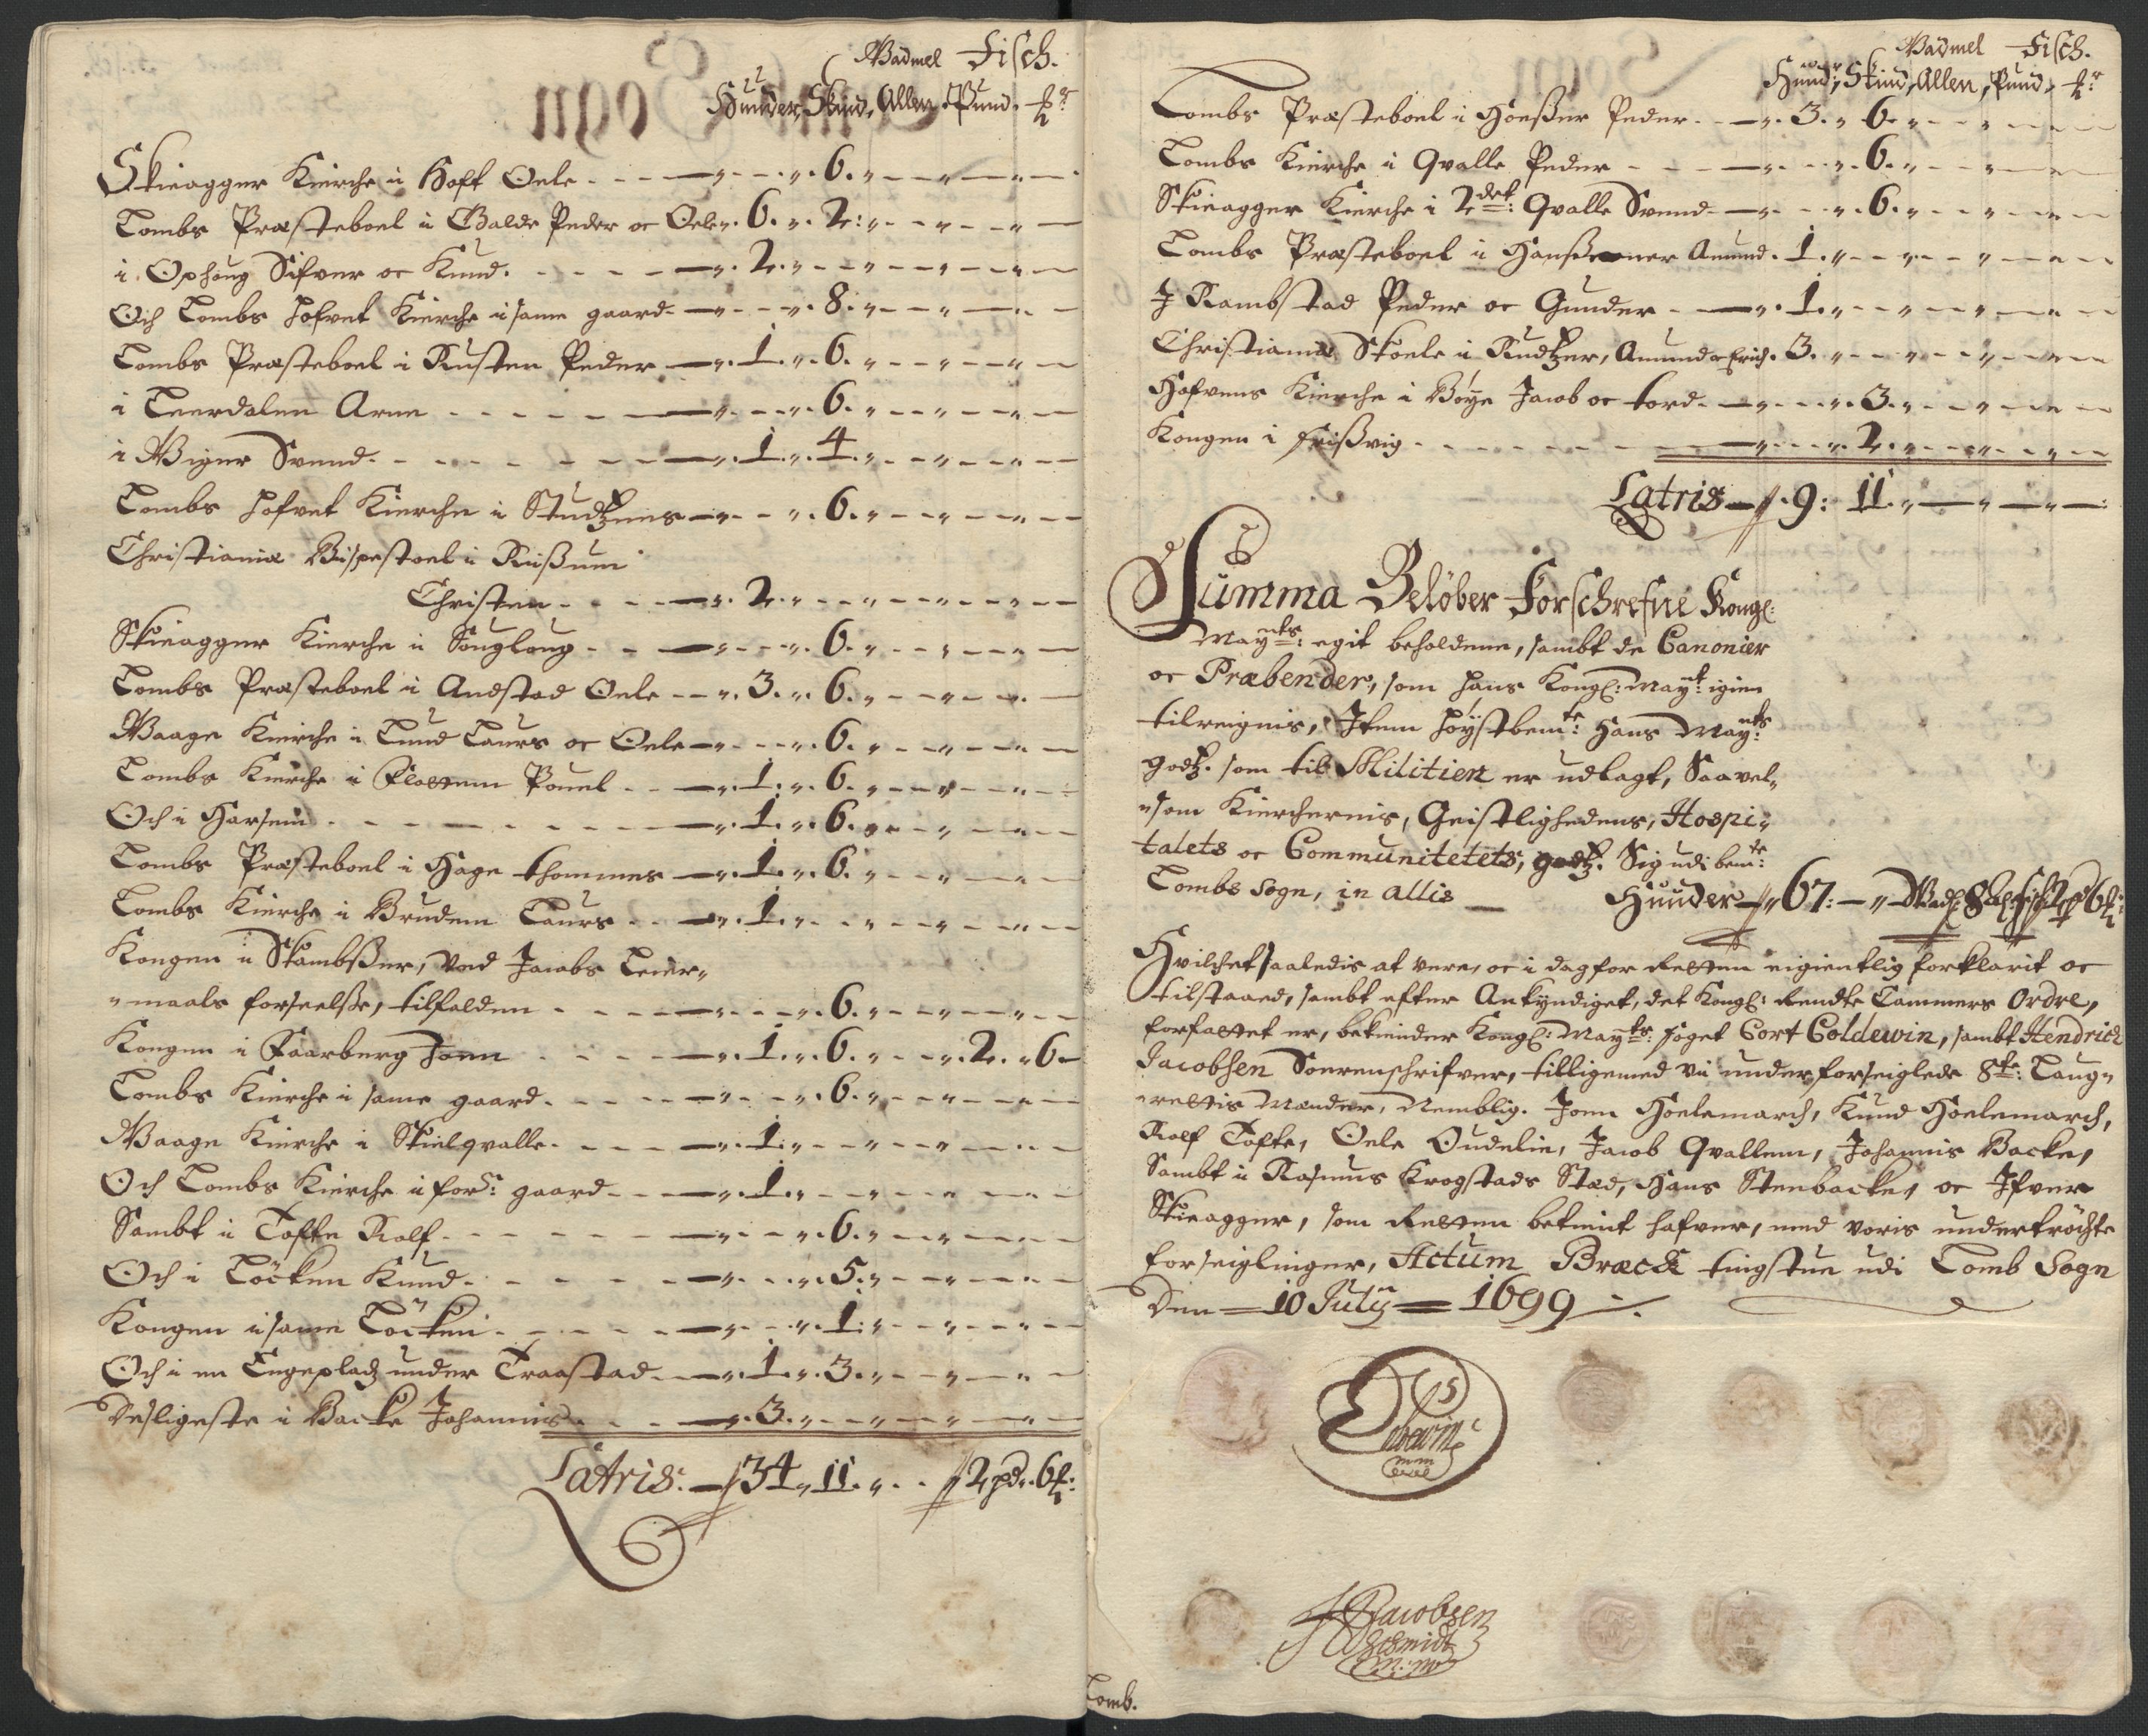 Wadmel Fisch.
Hunder, Skind, Allen, Pund, ℔r
Skieagger Kierche i Hoft Oele - 6.
Lombs Præsteboel i Gvalde Peder oc Oele. 6. 2:
i Ophoug Sifver oc Knud. 2.
Och Lombs hofvet Kierche i same gaard 8.
Lombs Præsteboel i Rusten Peder 1. 6.
i Leerdalen Arne 6.
i Wiger Svend. 1. 4.
Lombs hofvet Kierche i Studtzens 6.
Christianiæ Bispestoel i Riisum
Christen 2.
Skieagger Kierche i Sougloug 6.
Lombs Præsteboel i Andstad Oele 3. 6.
Waage Kierche i Lund Laurs oc Oele 6.
Lombs Kierche i Flattum Pouel 1. 6.
Och i Harsem 1. 6.
Lombs Præsteboel i Hage Thommes 1. 6.
Lombs Kierche i Bruden Laurs 1.
Kongen i Skambsser, ved Jacobs Leier-
maals forseelsse, tilfalden 6.
Kongen i Gaarberg Joen 1. 6. 2. 6
Lombs Kierche i same gaard. 6.
Waage Kierche i Skielqvalle. 1.
Och Lombs Kierche i forne: gaard 1.
Sambt i Tofte Rolf. 6.
Och i Löcken Knud. 5.
Kongen i same Löcken. 1.
Och i en Engeplads under Traastad 1. 3.
Desligeste i Backe Johannis 3.
Latris. 34. 11. 2 pd. 6 ℔:
Wadmel Fisch.
Hunder, Skind, Allen, Pund, ℔r:
Lombs Præsteboel i Hoesser Peder 3. 6.
Lombs Kierche i Qvalle Peder 6.
Skieagger Kierche i 2det: Qvalle Svend 6.
Lombs Præsteboel i Amund. 1.
I Rambstad Peder oc Gunder 1.
Christianiæ Skoele i Rudtzer, Amund oc Erich. 3.
Hafvens Kierche i Böye Jacob oc tord. 3.
Kongen i Frissvig 2.
Latris 9: 11.
Summa Belöber Forschrefne Kongl:
Mayts: egit beholdene, sambt de Canonier
oc Præbender, som hans Kongl: Mayt: igien
tilreignis, Item höystbemte: Hans Mayts:
godtz. som til Militien er udlagt, Saavel-
som Kierchernis, Geistlighedens, Hospi-
talets oc Communitetets, godtz. Sig udi bemte:
Lombs Sogn, in allis Hunder 67: Wadl: 8 al: Fisk 2 pd 6 ℔:
Hvilchet saaledis at vere, oc i dag for Retten eigientlig forklarit oc
tilstaaed, sambt efter Ankyndiget, det Kongl: Rendte Cammers Ordre,
forfattet er, bekiender Kongl: Mayts: foget Cort Coldewin, sambt Hendrich
Jacobsen Sorenschrifver, tilligemed vii underforseiglede 8te: Laug-
rettis Mænder, Nemblig. Joen Hoelemarch, Knud Hoelemarch,
Rolf Tofte, Oele Oudelie, Jacob Qvallem, Johannis Backe,
Sambt i Rasmus Krogstads Stæd, Hans Stenbacke, oc Ifver
Skieagger, som Retten betient hafver, med voris undertröchte
forseiglinger, Actum Bræck tingstue udi Lomb Sogn
Den 10 July 1699
Coldewin
mm
HJacobsen
Schmidt
M: mp
Lomb.